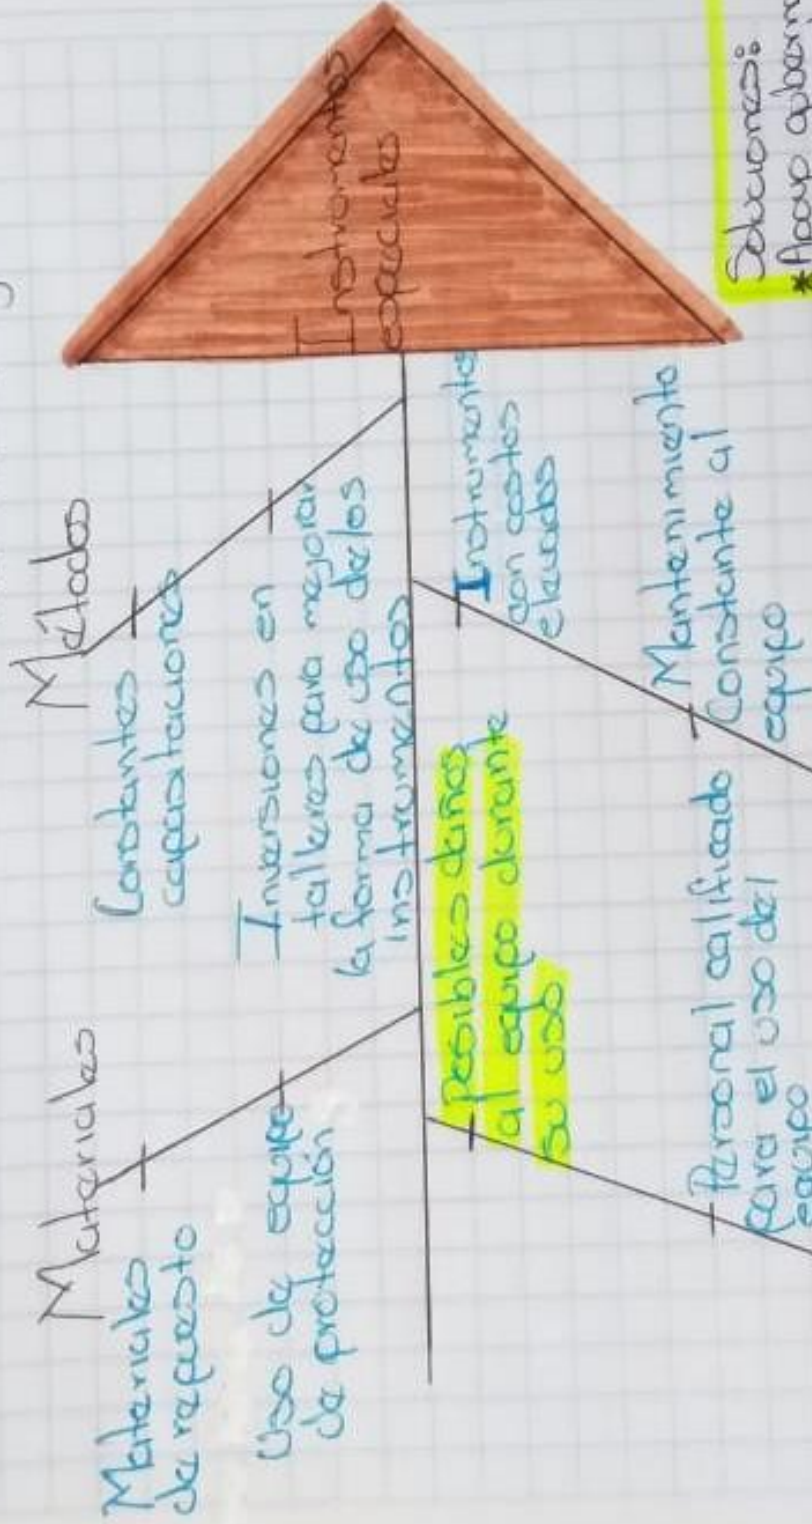 Materiales
Métodos
Materiales
de repuesto
Uso de equipo
de protección
Constantes
capacitaciones
Inversiones en
talleres para mejorar
la forma de uso de los
instrumentos
Instrumentos
especiales
Posibles daños
al equipo durante
su uso
Personal calificado
para el uso del
equipo
Instrumentos
con costos
elevados
Mantenimiento
Constante al
equipo
Soluciones:
*Apoyo